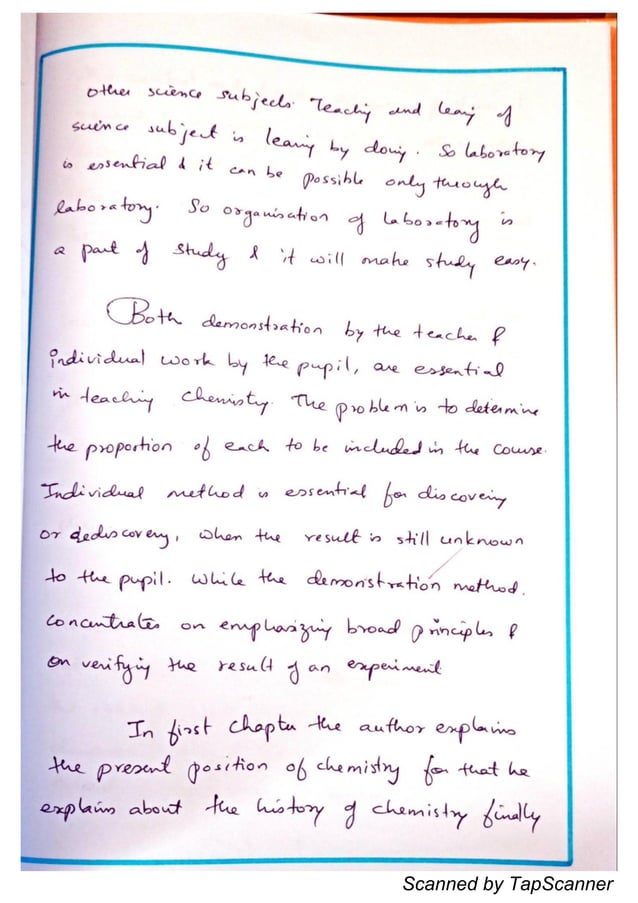 other science subjects. Teaching and learng of
science subject is learng by doing. So laboratory
is essential & it can be possible only through
laboratory. So organisation of laboratory is
a part of study & it will make study easy.
Both demonstration by the teacher &
individual work by the pupil, are essential
in teaching chemistry. The problem is to determine
the proportion of each to be included in the course.
Individual method is essential for discovering
or dediscovery, when the result is still unknown
to the pupil. While the demonstration method.
concentrates on emphasizing broad principles &
on verifying the result of an experiment
In first chapter the author explains
the present position of chemistry for that he
explains about the history of chemistry finally
Scanned by TapScanner